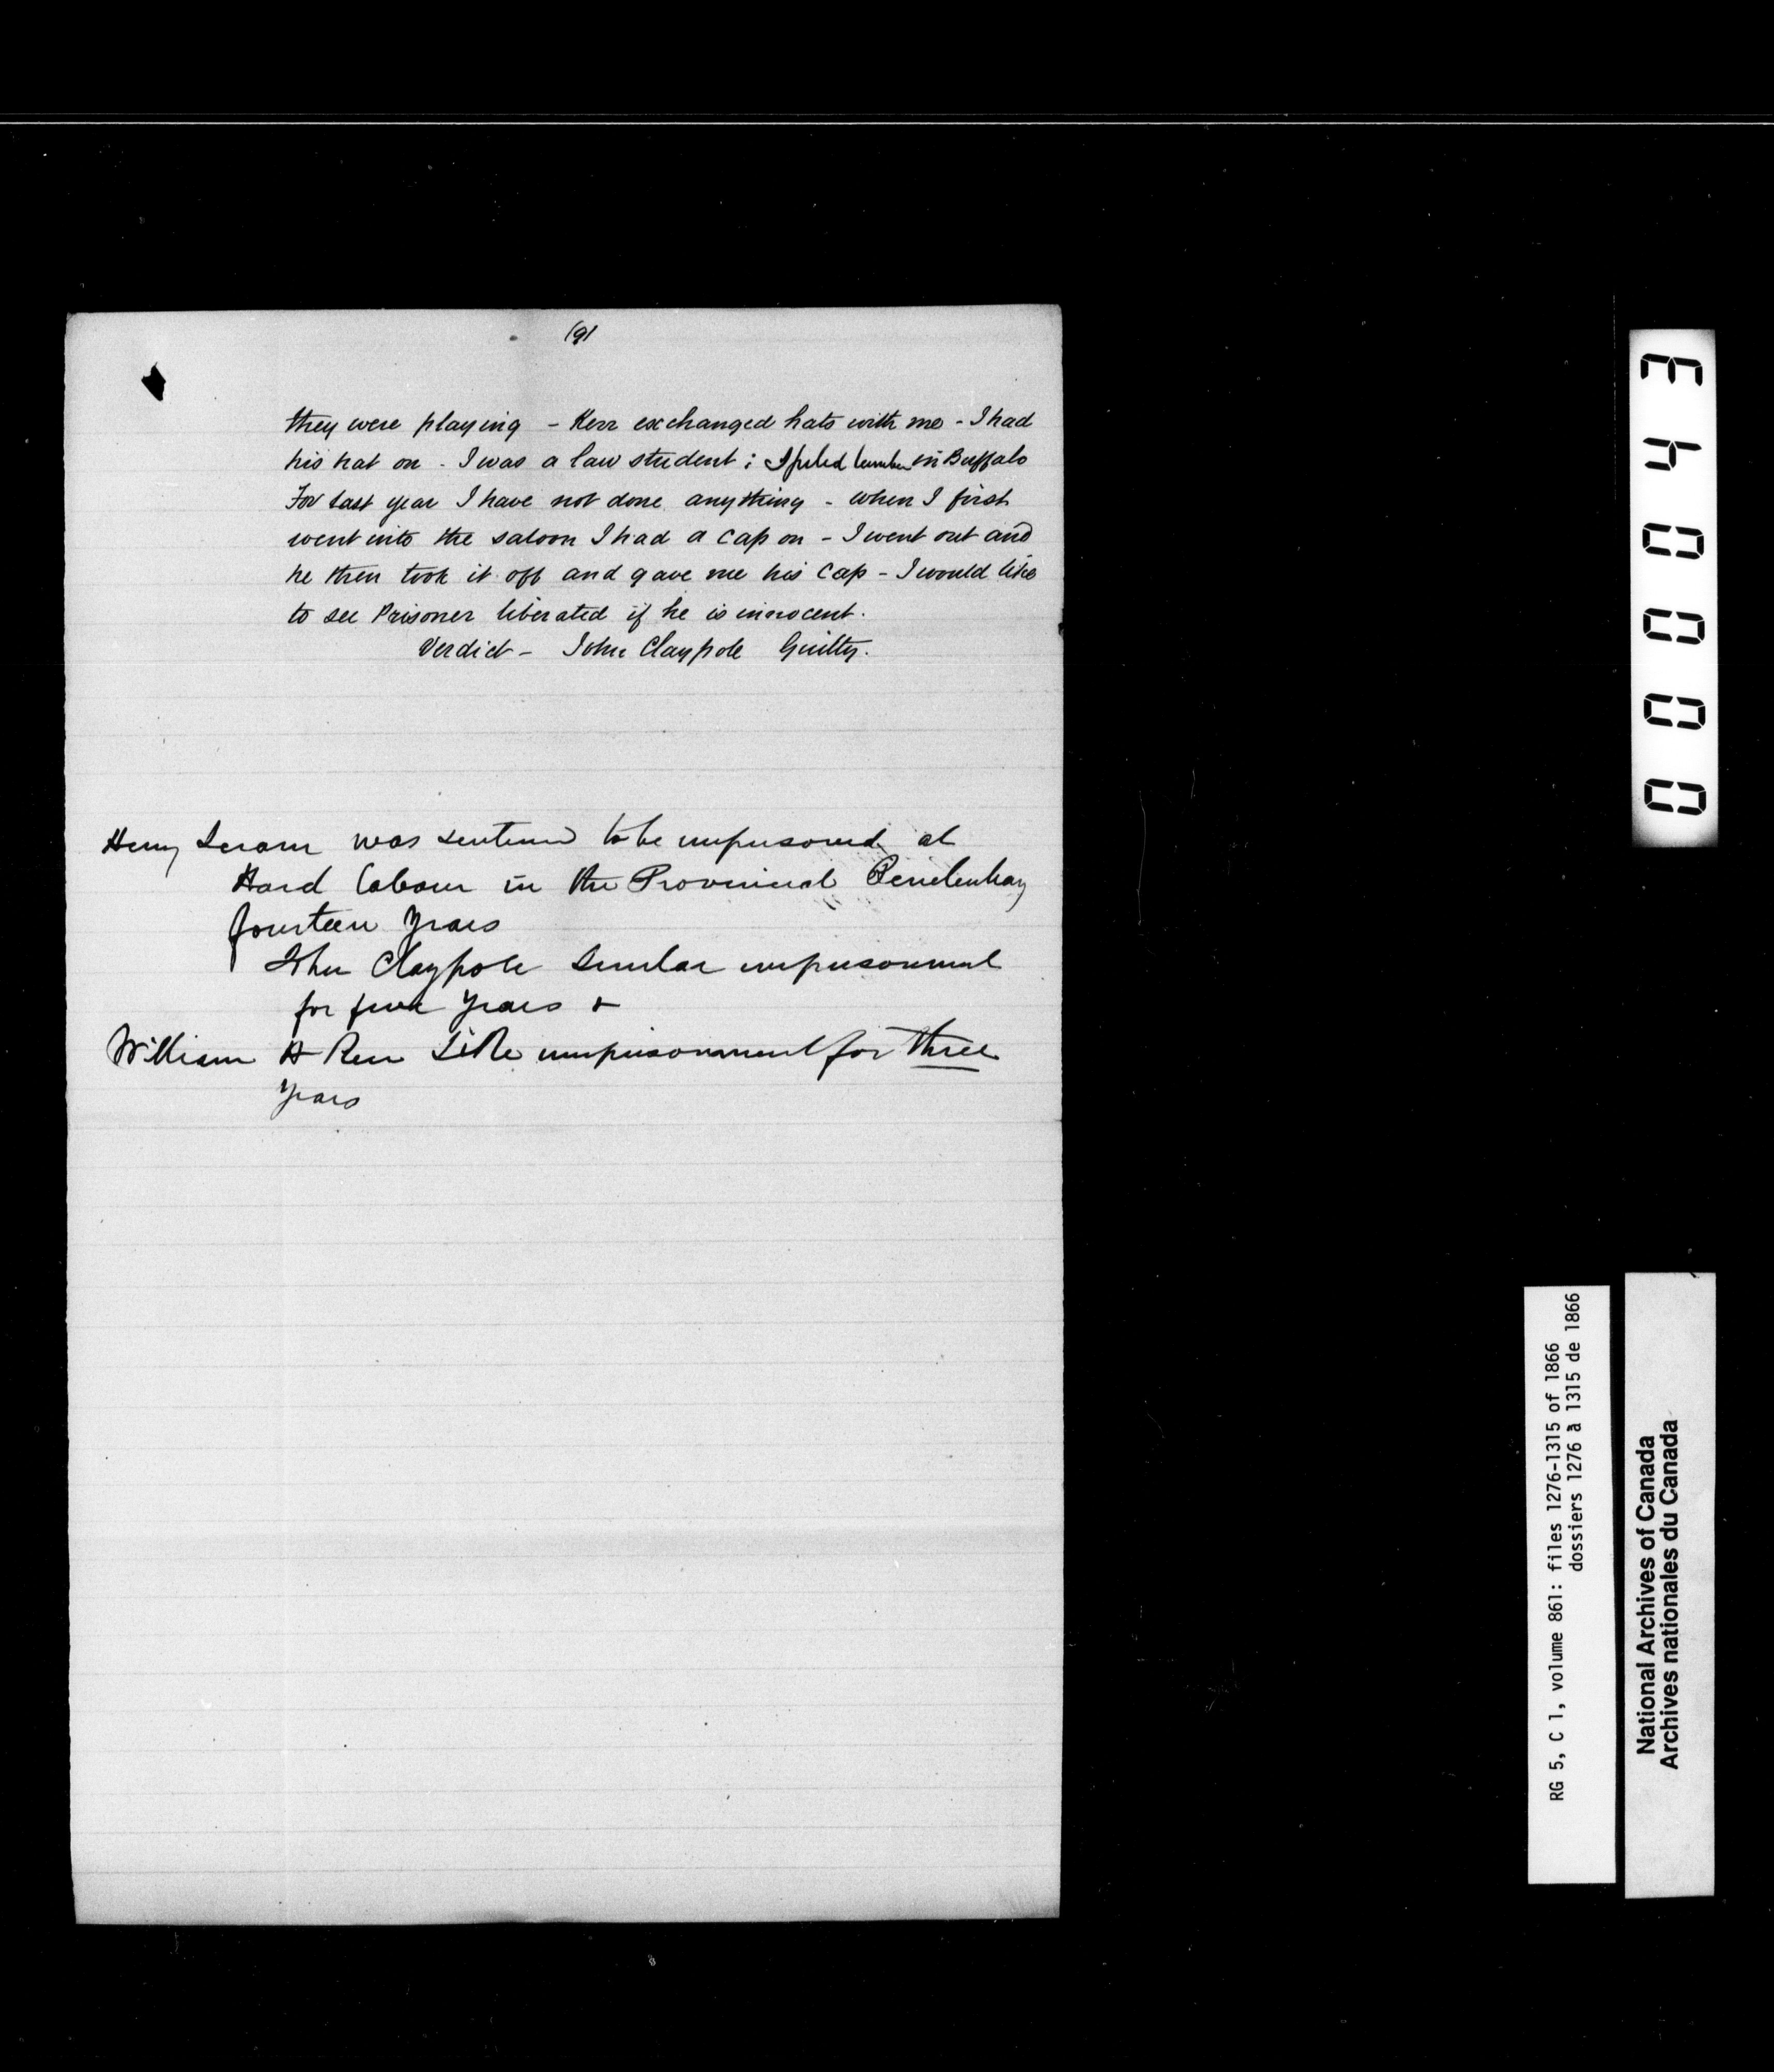 (9)
they were playing - Kerr exchanged hats with me - I had
his hat on - I was a law student; I piled lumber in Buffalo
For last year I have not done anything - when I first
went into the saloon I had a cap on - I went out and
he then took it off and gave me his cap - I would like
to see Prisoner liberated if he is innocent.
Verdict - John Claypole Guilty.
Henry was sentenced to be imprisoned at
Hard labour in the Provincial Penitentiary
fourteen years
John Claypole similar imprisonment
for five years &
William H Kerr like imprisonment for three
years
000043
RG 5, C 1, volume 861: files 1276-1315 of 1866
dossiers 1276 à 1315 de 1866
National Archives of Canada
Archives nationales du Canada